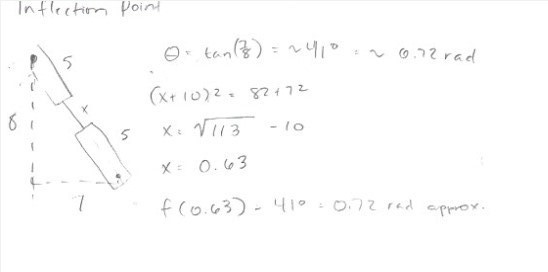 Inflection Point
5
θ = tan(7/8) = ~41° = ~ 0.72 rad
(x+10)2 = 82+72
x
8
5
x = √113 - 10
x = 0.63
7
f(0.63) - 41° = 0.72 rad approx.